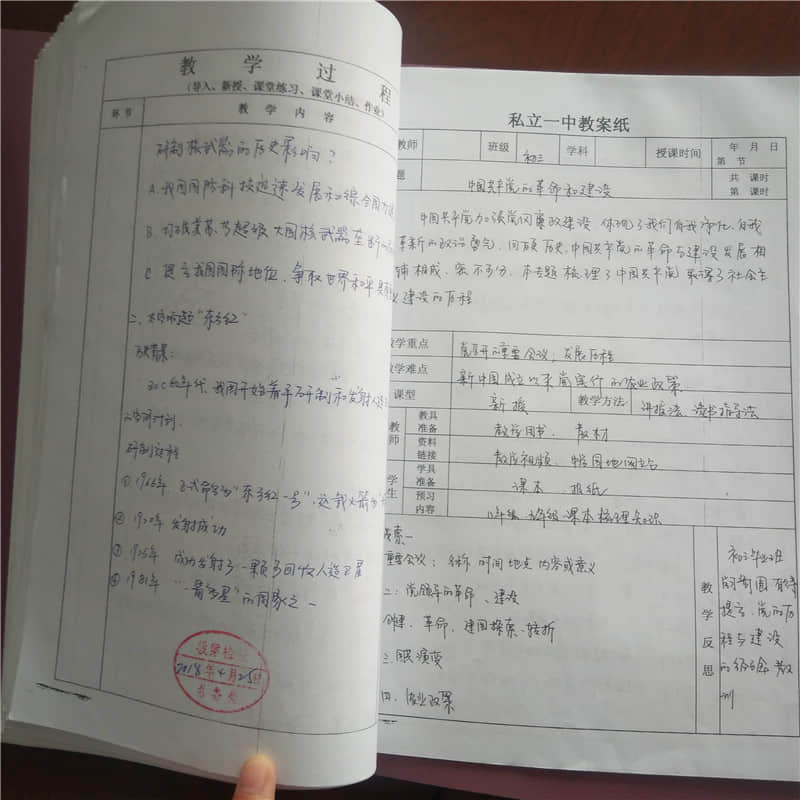 教 学 过 程
(导入、新授、课堂练习、课堂小结、作业)
环节
教 学 内 容
研制核武器的历史影响？
A.我国国防科技迅速发展和综合国力
B.打破美苏等超级大国核武器垄断
C 提高我国国际地位，争取世界和平
二、 "东方红"
历史背景：
20C 60年代，我国开始着手研制和发射人造
卫星计划.
研制过程
① 正式命名为"东方红一号"，
② 1970年 发射成功
③ 1975年 成功发射了一颗可回收人造卫星
④ 1981年 "一箭多星"的国家之一
2018年4月25日
私立一中教案纸
教师
班级
初三
学科
授课时间
年 月 日
第 节
题
中国共产党的革命和建设
共 课时
第 课时
中国共产党加强党风廉政建设 体现了我们自我净化,自我
革新的政治勇气，回顾历史，中国共产党的革命与建设发展相
辅相成、密不可分，本专题梳理了中国共产党 社会主
义建设的历程
教学重点
召开的重要会议；发展历程
教学难点
新中国成立以来尚实行的农业政策
课型
新授
教学方法
讲授法、读书指导法
教师
教具准备
教学用书、教材
资料链接
教学视频、
学生
学具准备
课本 报纸
预习内容
八年级 九年级 课本梳理知识
探索一
重要会议：名称 时间 地点 内容或意义
二：党领导的革命、建设
创建、革命、建国探索、转折
三 演变
四、农业政策
教学反思
初三毕业班
有待
提高，党的历
程与建设
的经验教
训